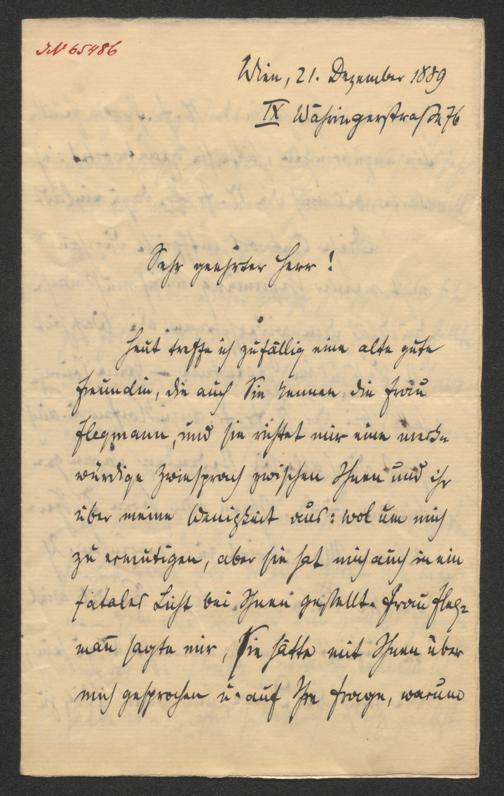 JN 65486
Wien, 21. Dezember 1889
IX Währingerstraße 76
Sehr geehrter Herr!
Heut treffe ich zufällig eine alte gute
Freundin, die auch Sie kennen, die Frau
Flegmann, und sie richtet mir eine merk-
würdige Zwiesprach zwischen Ihnen und ihr
über meine Wenigkeit aus: wol um mich
zu ermutigen, aber sie hat mich auch in ein
fatales Licht bei Ihnen gestellt. Frau Fleg-
mañ sagte mir, Sie hätte mit Ihnen über
mich gesprochen u. auf Ihre Frage, warum